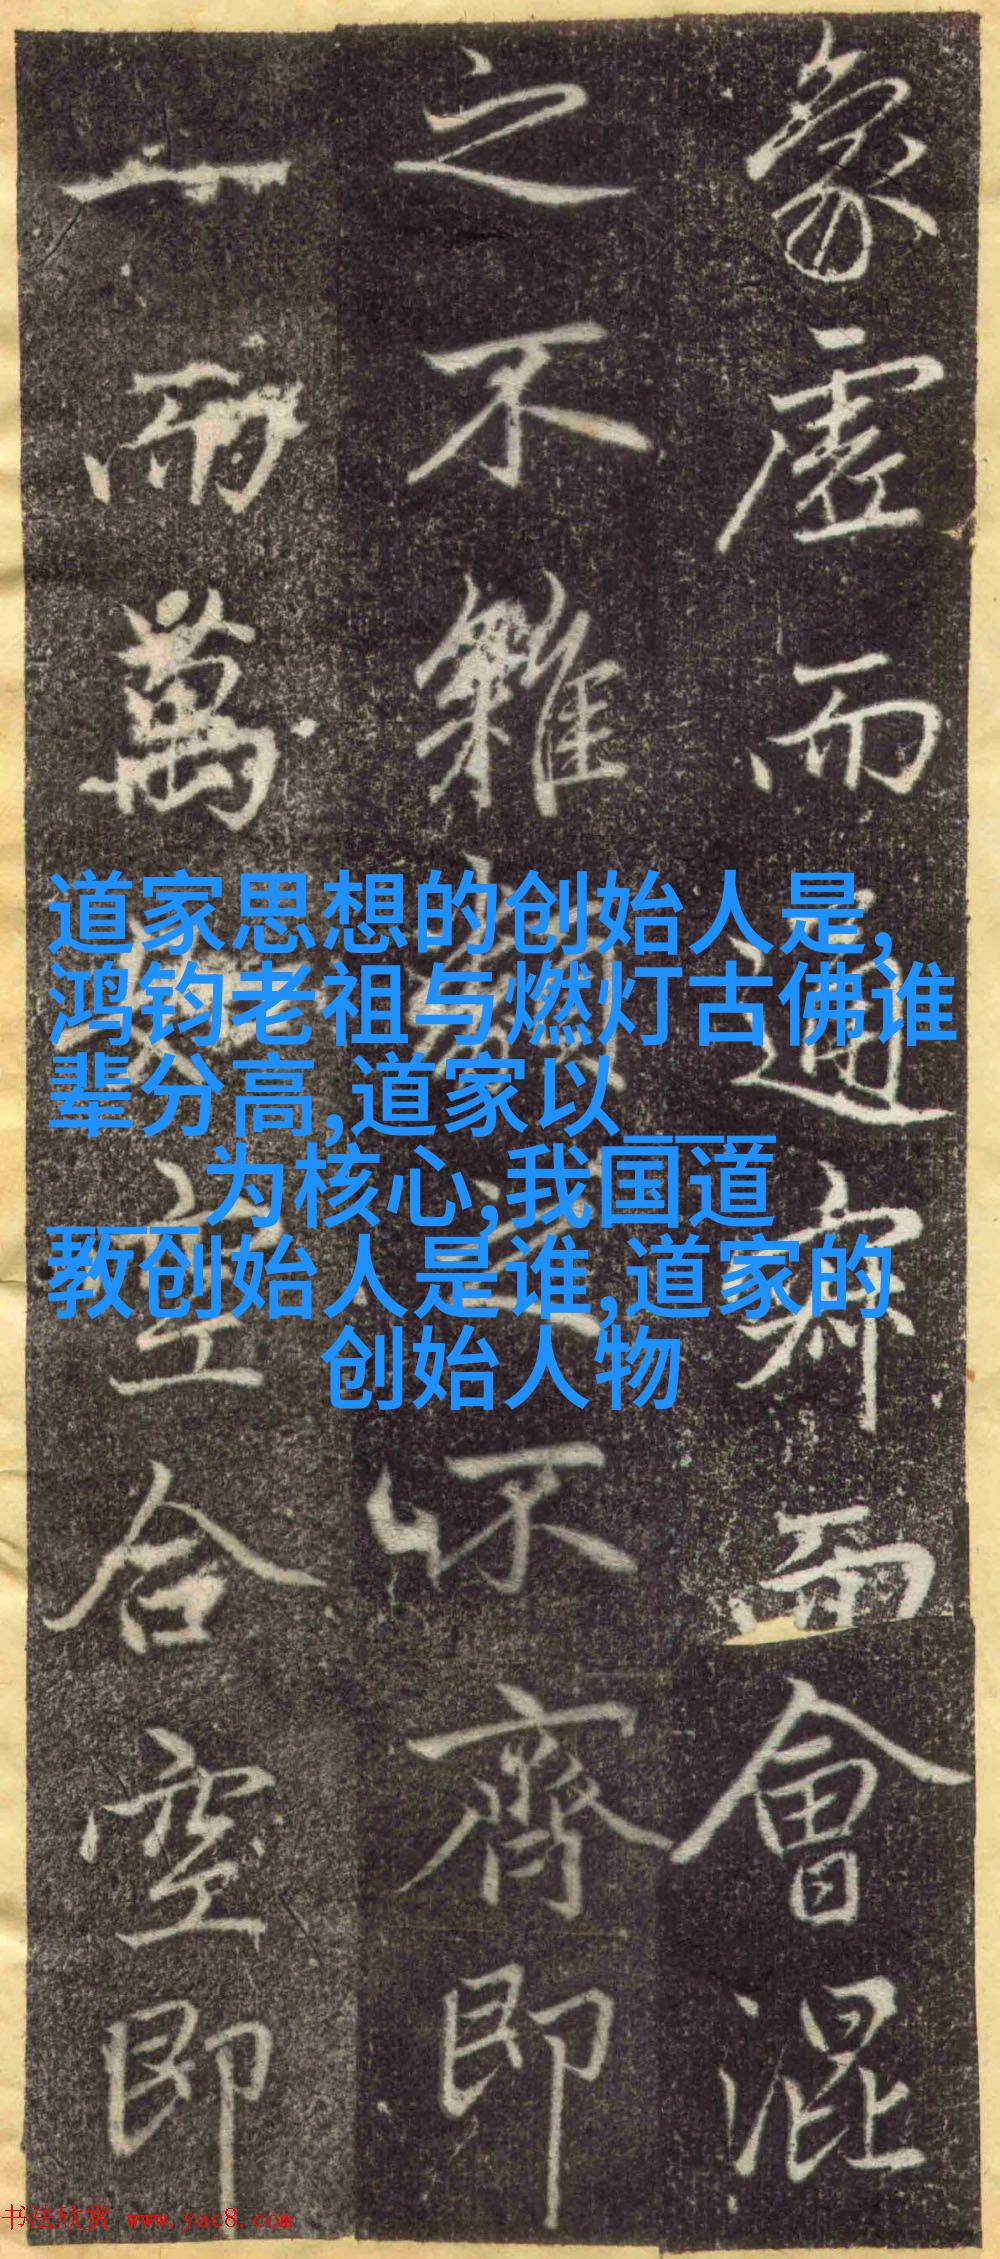 象虛而通寂而會混
之不雜
不齊即
一而萬
空合空即
道家思想的创始人是,
鸿钧老祖与燃灯古佛谁
辈分高,道家以___
___为核心,我国道
教创始人是谁,道家的
创始人物
书法欣赏 www.yac8.com